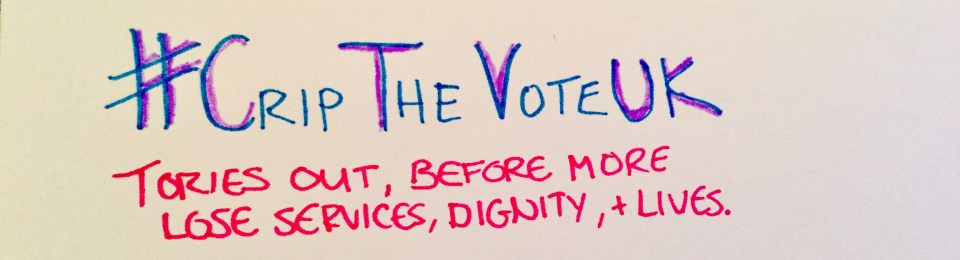 #CRIP THE VOTEUK
TORIES OUT, BEFORE MORE
LOSE SERVICES, DIGNITY, + LIVES.